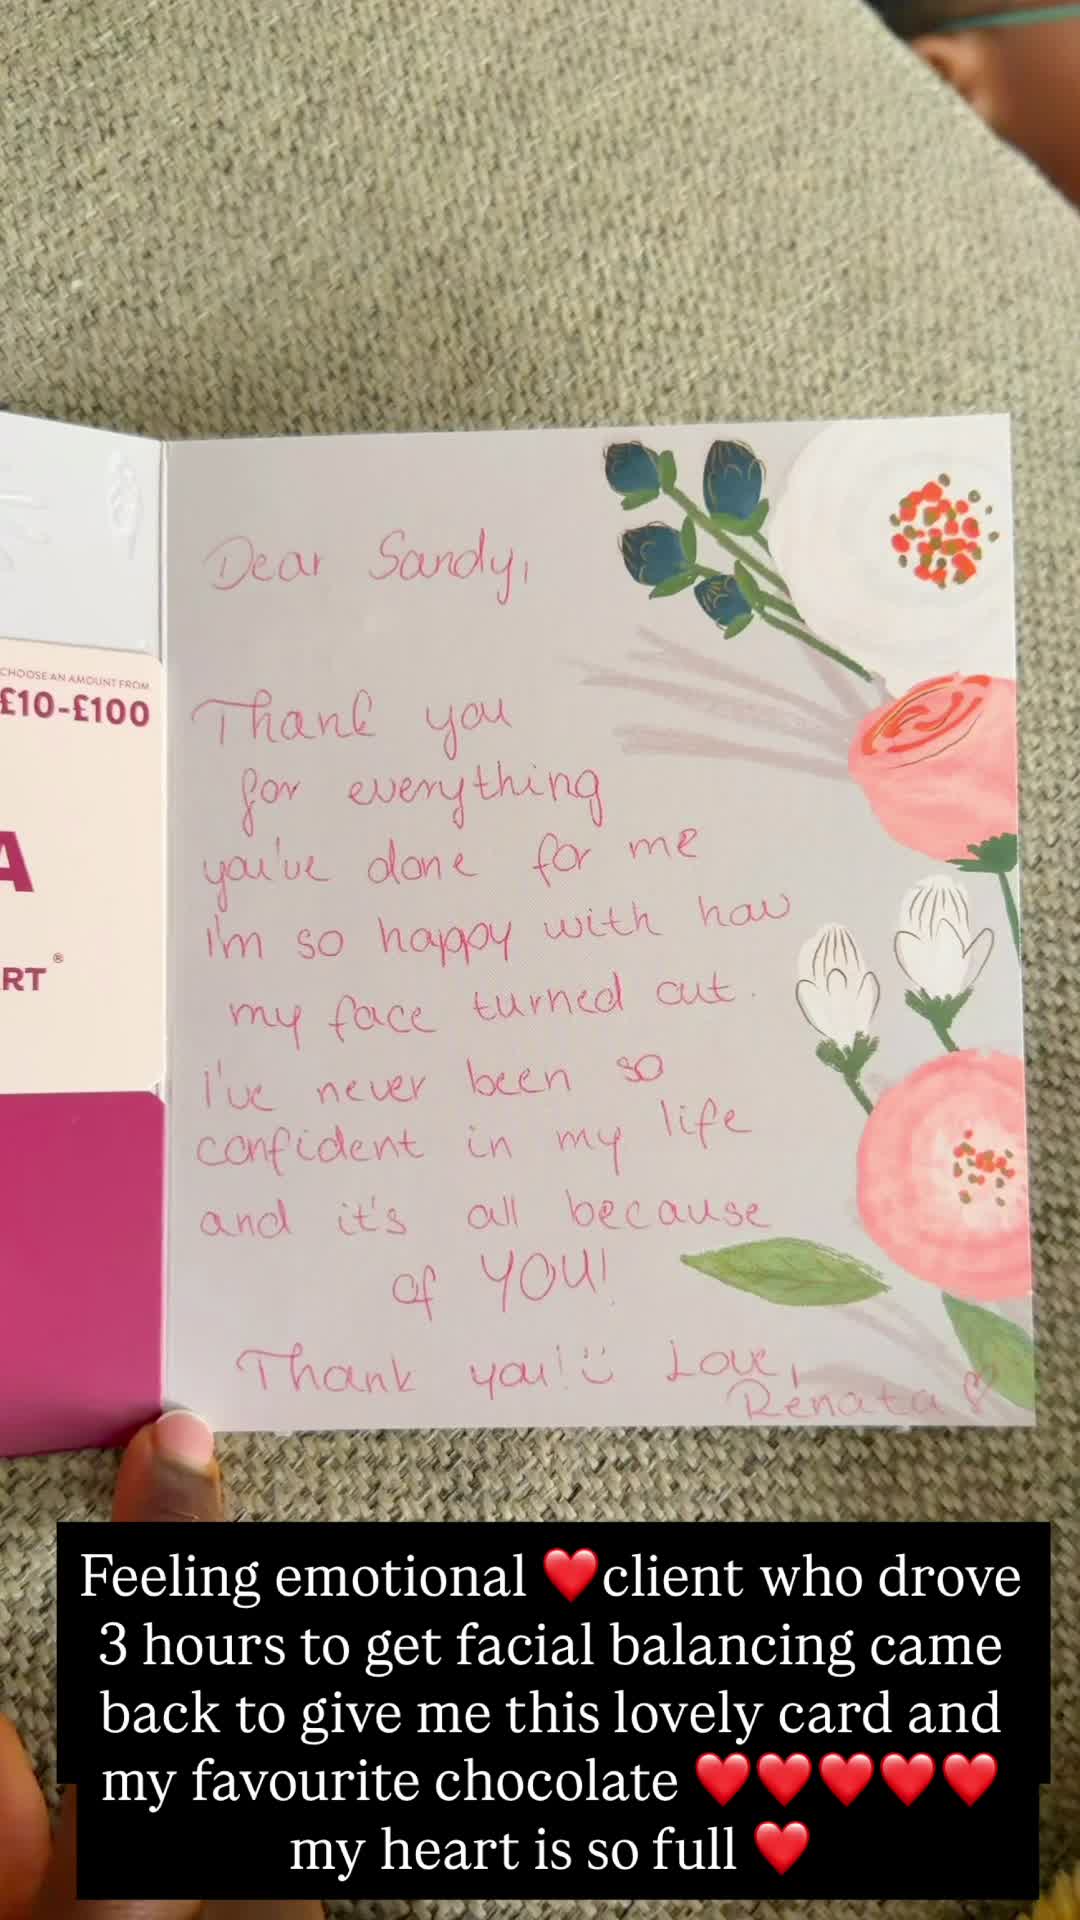 CHOOSE AN AMOUNT FROM
£10-£100
A
RT®
Dear Sandy,
Thank you
for everything
you've done for me
I'm so happy with how
my face turned out.
I've never been so
confident in my life
and it's all because
of YOU!
Thank you! :) Love,
Renata ♡
Feeling emotional ❤️client who drove
3 hours to get facial balancing came
back to give me this lovely card and
my favourite chocolate ❤️❤️❤️❤️❤️
my heart is so full ❤️